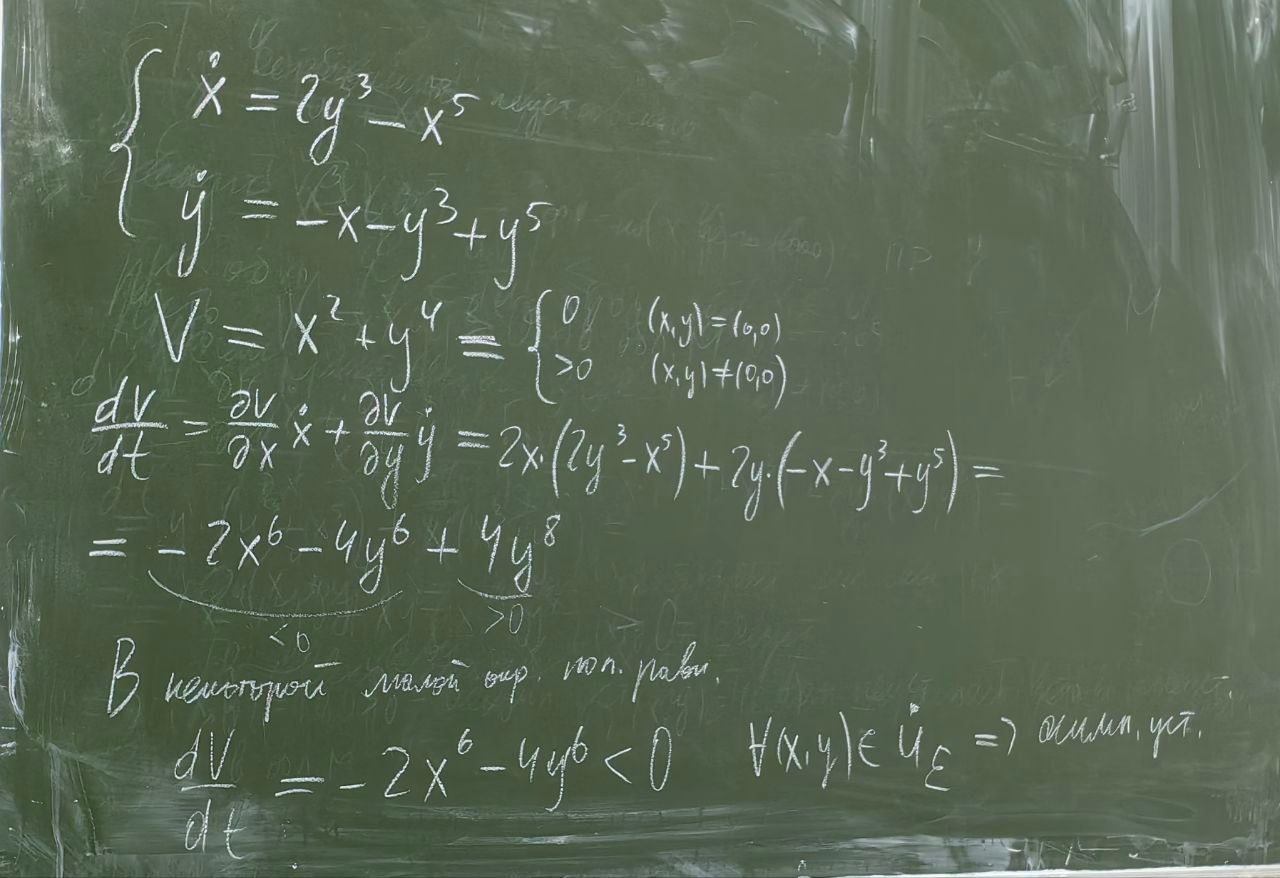 { ẋ = 2y³ - x⁵
ẏ = -x - y³ + y⁵
V = x² + y⁴ = { 0 (x,y) = (0,0)
>0 (x,y) ≠ (0,0)
dV/dt = ∂V/∂x ẋ + ∂V/∂y ẏ = 2x·(2y³ - x⁵) + 2y·(-x - y³ + y⁵) =
= -2x⁶ - 4y⁶ + 4y⁸
<0 >0
В некоторой малой окр. пол. равн.
dV/dt = -2x⁶ - 4y⁶ < 0 ∀(x,y) ∈ U̇_ε => асимп. уст.